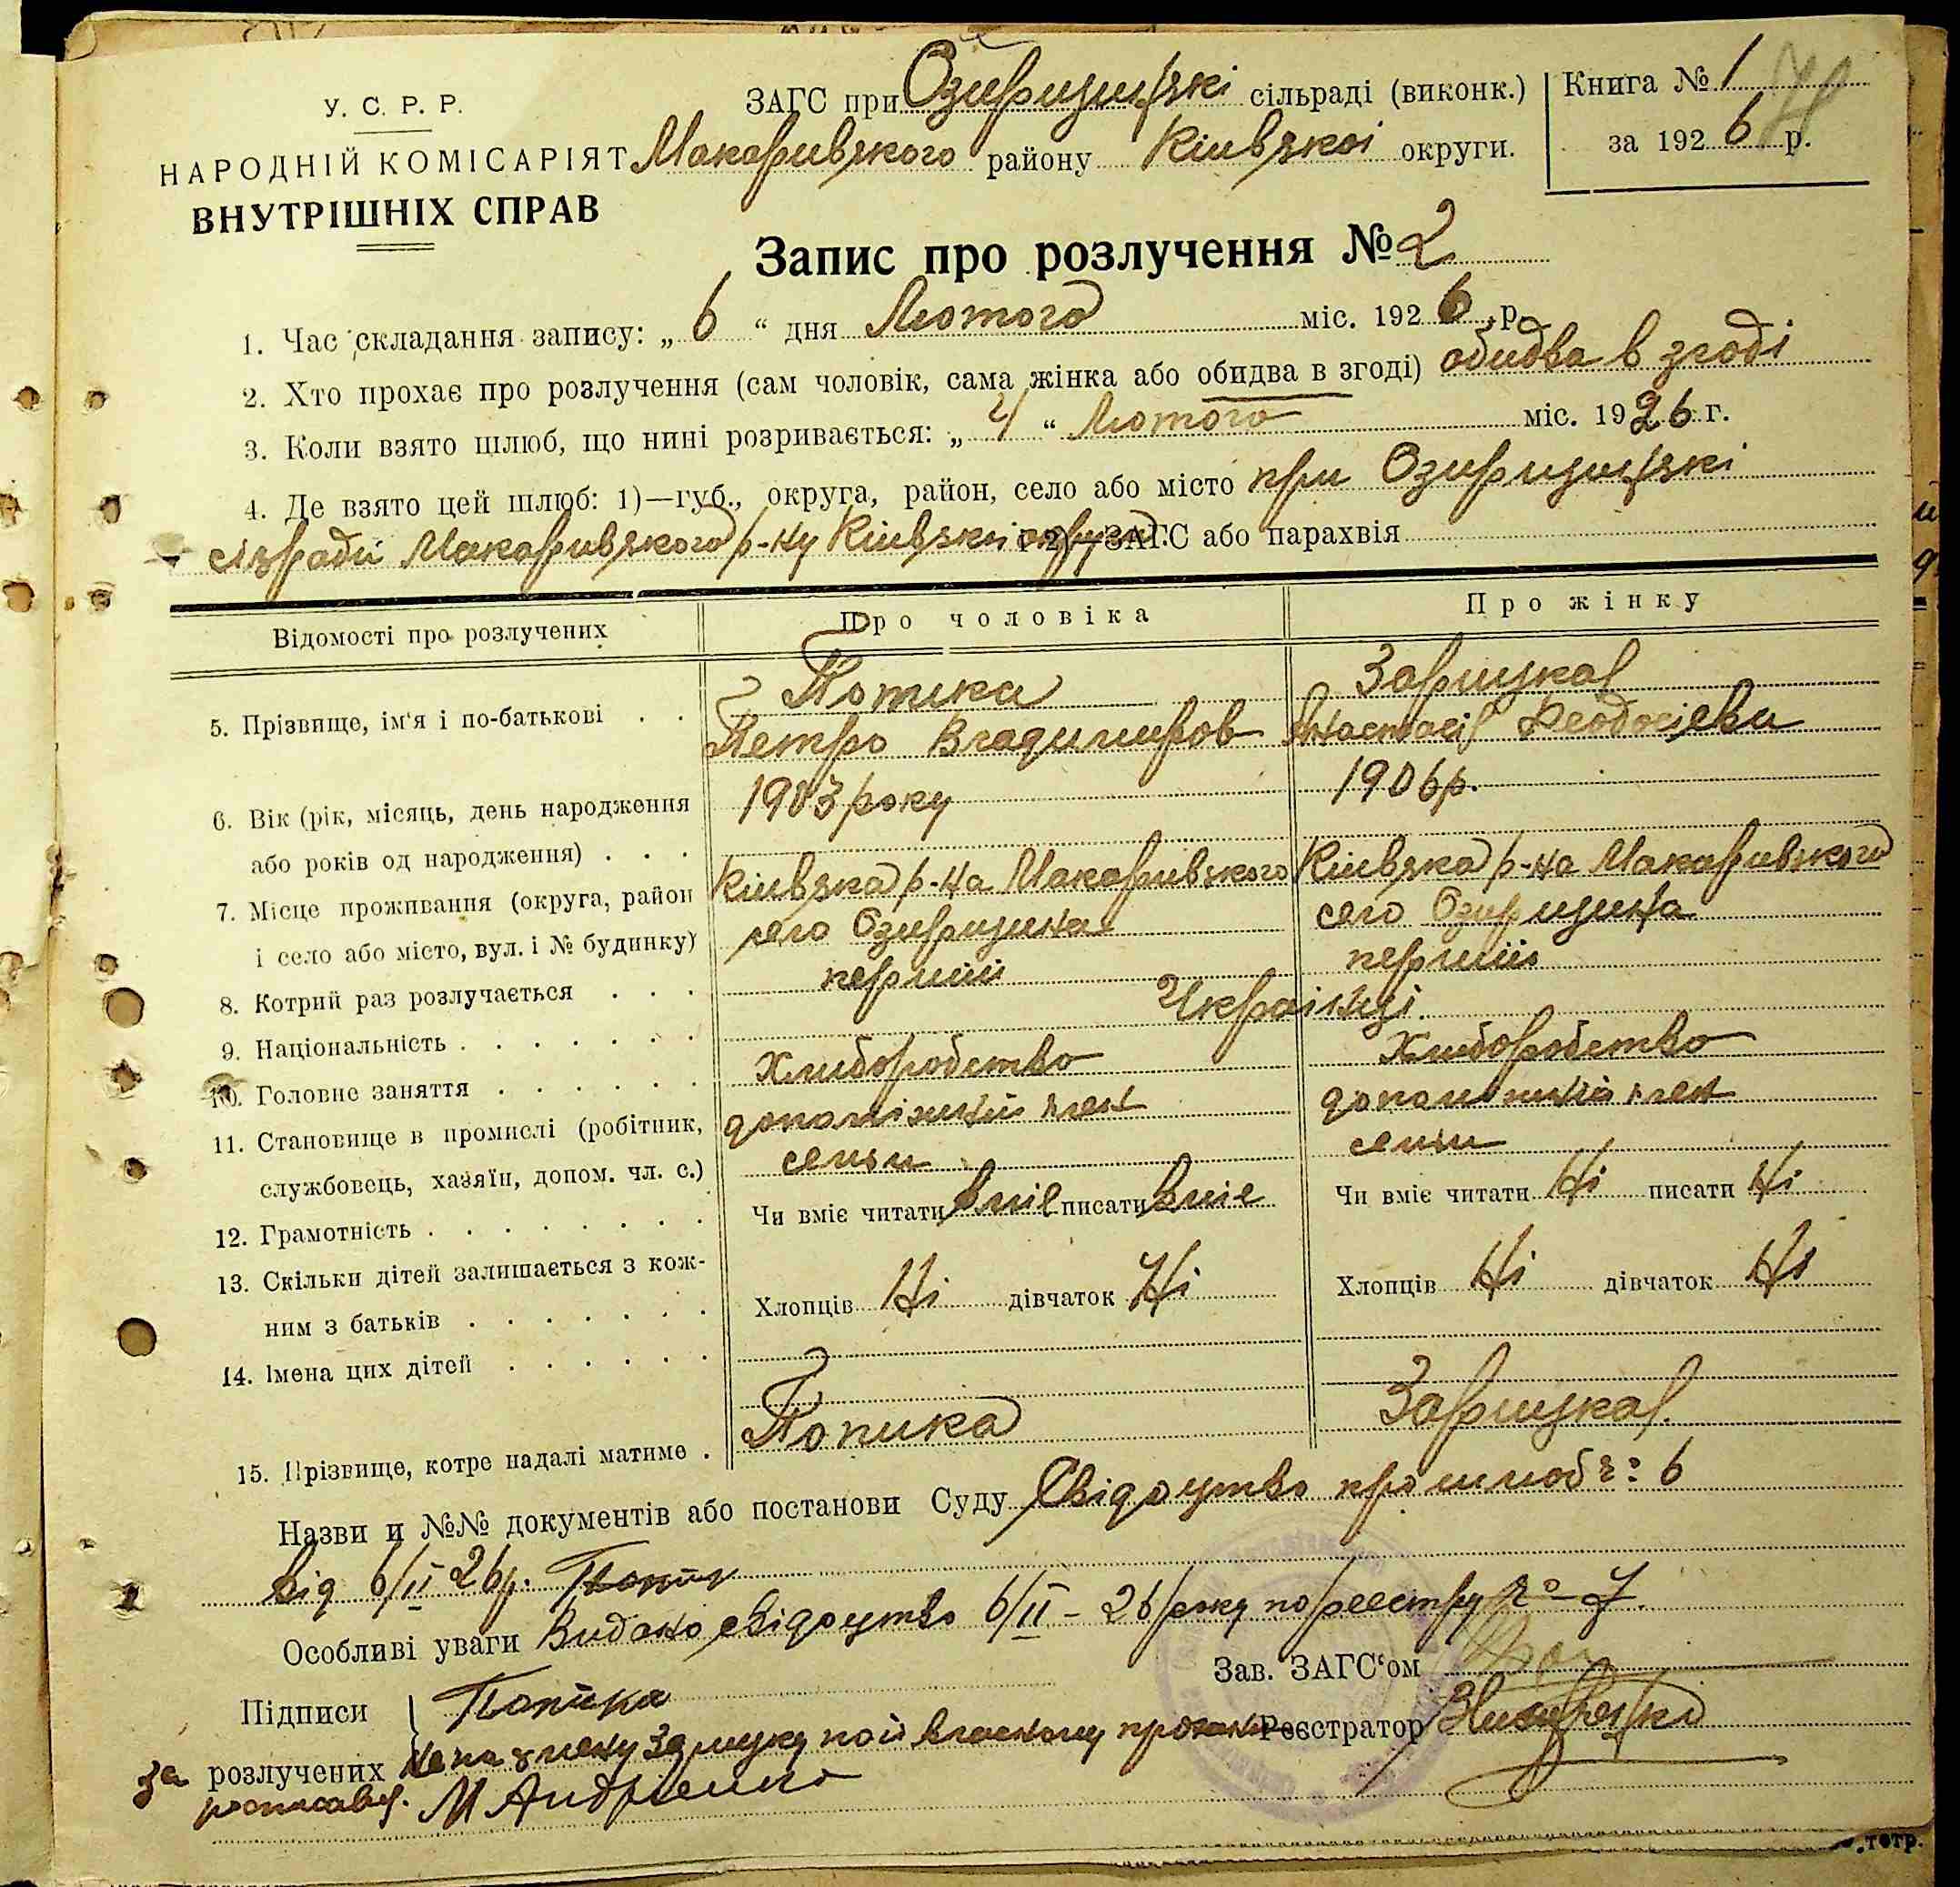 У. С. Р. Р.
НАРОДНІЙ КОМІСАРІЯТ
ВНУТРІШНІХ СПРАВ
ЗАГС при Озирщинські сільраді (виконк.)
Макарівського району Київської округи.
Книга № 1
за 1926 р.
Запис про розлучення № 2
1. Час складання запису: „ 6 “ дня Лютого міс. 1926 р.
2. Хто прохає про розлучення (сам чоловік, сама жінка або обидва в згоді) обидва в згоді
3. Коли взято шлюб, що нині розривається: „ 4 “ Лютого міс. 1926 г.
4. Де взято цей шлюб: 1)—губ., округа, район, село або місто при
Макарівского р-ну і 2)—ЗАГС або парахвія
Відомості про розлучених
Про чоловіка
Про жінку
5. Прізвище, ім'я і по-батькові . .
Петро Владимиров
Зарицкая
Анастасія Феодосіевна
6. Вік (рік, місяць, день народження
або років од народження) . . .
1903 року
1906 р.
7. Місце проживання (округа, район
і село або місто, вул. і № будинку)
Киівска р-на Макаривского
село Озирщина
Киівска р-на Макаривского
село Озирщина
8. Котрий раз розлучається . . .
перший
перший
9. Національність . . . . . . .
Украінці.
10. Головне заняття . . . . . .
Хлиборобство
Хлиборобство
11. Становище в промислі (робітник,
службовець, хазяїн, допом. чл. с.)
допоміжний член
семьи
допоміжний член
семьи
12. Грамотність . . . . . . . .
Чи вміє читати вміе писати вміе
Чи вміє читати Ні писати Ні
13. Скільки дітей залишається з кож-
ним з батьків . . . . . .
Хлопців Ні дівчаток Ні
Хлопців Ні дівчаток Ні
14. Імена цих дітей . . . . . .
15. Прізвище, котре надалі матиме .
Попика
Зарицкая.
Назви и №№ документів або постанови Суду Свідоцтво про шлюб № 6
від 6/II 26 р.
Особливі уваги Видано свідоцтво 6/II – 26 року по реестру № 7.
Зав. ЗАГС'ом
Підписи
розлучених
Попика
Реєстратор
за неписьмену Зарицку по ії власному проханню
росписався. М Андрієнко
.тотр.